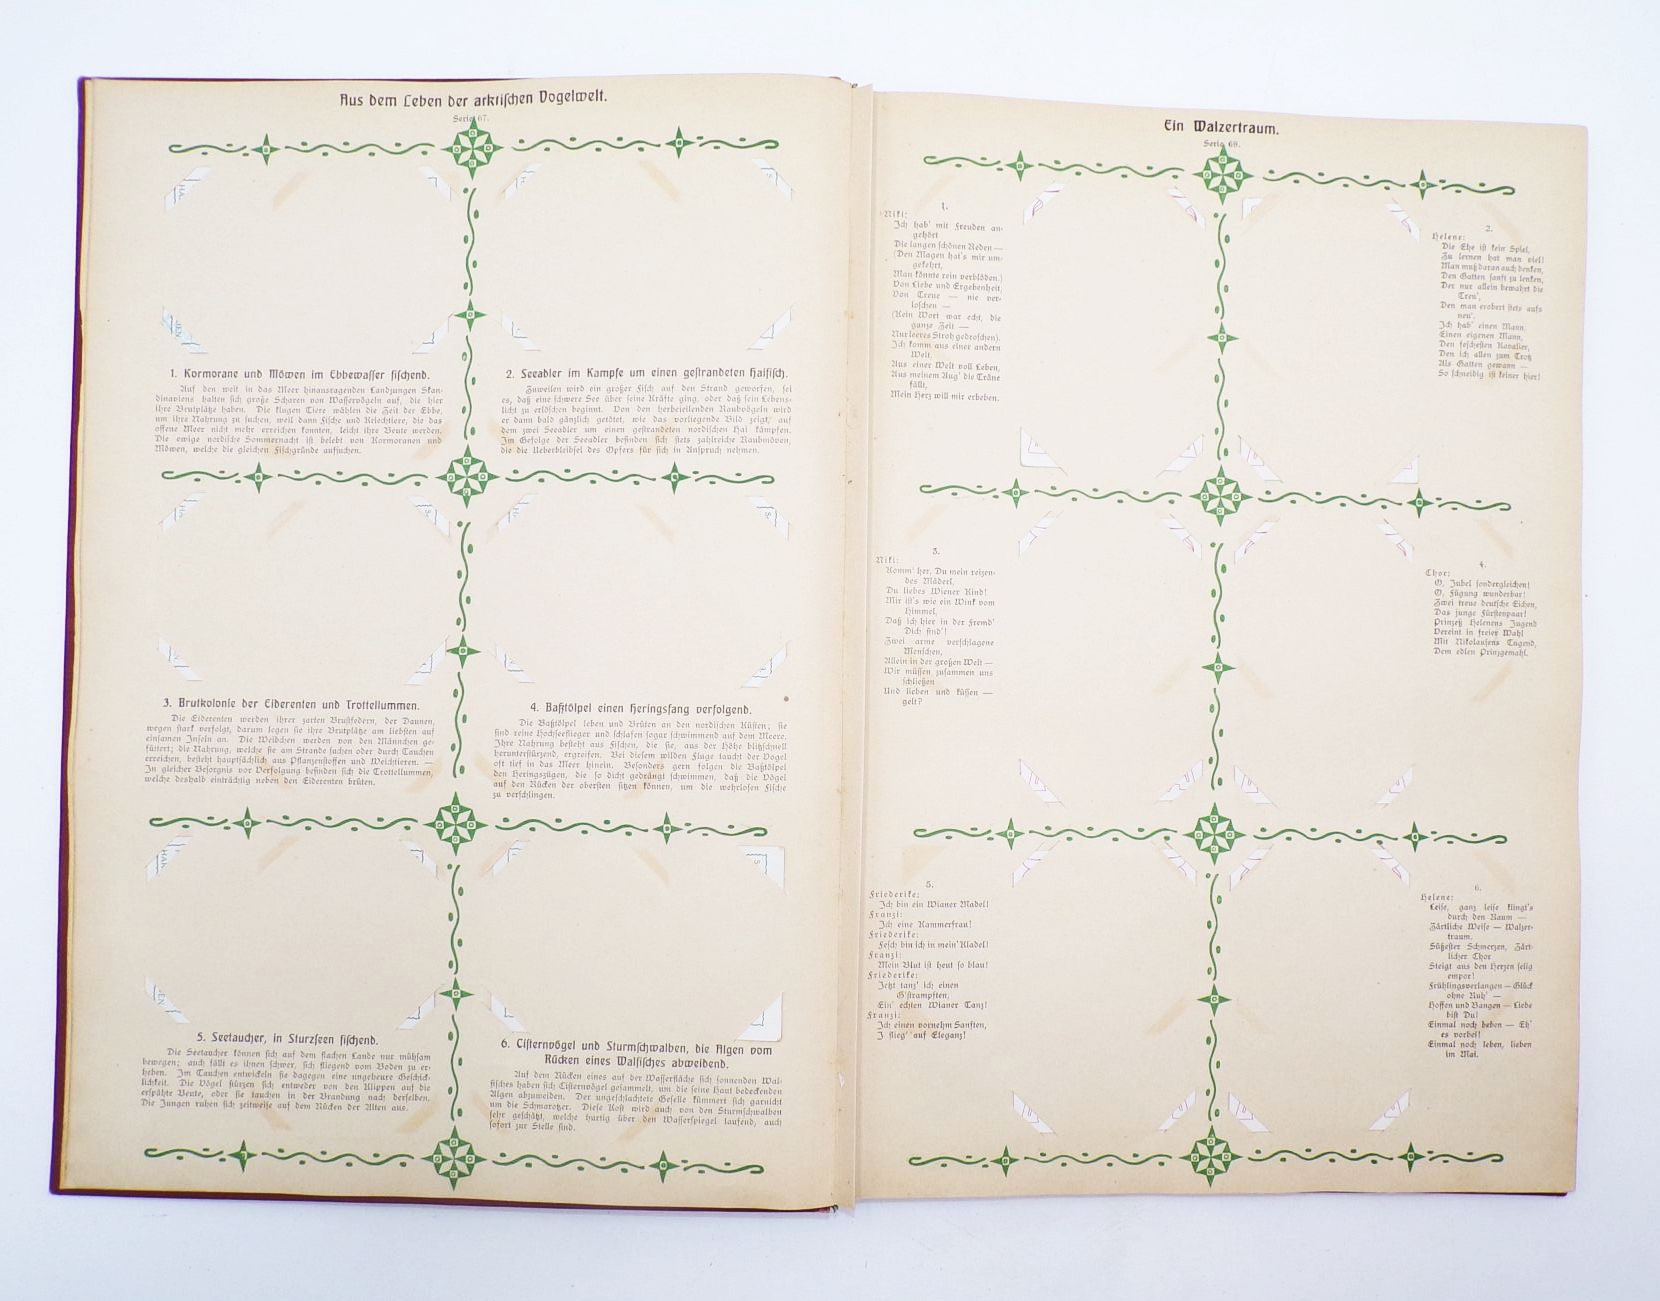 Aus dem Leben der arktischen Vogelwelt.
Serie 67.
1. Kormorane und Möwen im Ebbewasser fischend.
Auf den weit in das Meer hinausragenden Landzungen Skan-
dinaviens halten sich große Scharen von Wasservögeln auf, die hier
ihre Brutplätze haben. Die klugen Tiere wählen die Zeit der Ebbe,
um ihre Nahrung zu suchen, weil dann Fische und Kriechtiere, die das
offene Meer nicht mehr erreichen konnten, leicht ihre Beute werden.
Die ewige nordische Sommernacht ist belebt von Kormoranen und
Möwen, welche die gleichen Fischgründe aufsuchen.
2. Seeadler im Kampfe um einen gestrandeten Haifisch.
Zuweilen wird ein großer Fisch auf den Strand geworfen, sei
es, daß eine schwere See über seine Kräfte ging, oder daß sein Lebens-
licht zu erlöschen beginnt. Von den herbeieilenden Raubvögeln wird
er dann bald gänzlich getötet, wie das vorliegende Bild zeigt, auf
dem zwei Seeadler um einen gestrandeten nordischen Hai kämpfen.
Im Gefolge der Seeadler befinden sich stets zahlreiche Raubmöwen,
die die Ueberbleibsel des Opfers für sich in Anspruch nehmen.
3. Brutkolonie der Eiderenten und Trottellummen.
Die Eiderenten werden ihrer zarten Brustfedern, der Daunen,
wegen stark verfolgt, darum legen sie ihre Brutplätze am liebsten auf
einsamen Inseln an. Die Weibchen werden von den Männchen ge-
füttert; die Nahrung, welche sie am Strande suchen oder durch Tauchen
erreichen, besteht hauptsächlich aus Pflanzenstoffen und Weichtieren. —
In gleicher Besorgnis vor Verfolgung befinden sich die Trottellummen,
welche deshalb einträchtig neben den Eiderenten brüten.
4. Baßtölpel einen Heringsfang verfolgend.
Die Baßtölpel leben und Brüten an den nordischen Küsten; sie
sind reine Hochseeflieger und schlafen sogar schwimmend auf dem Meere.
Ihre Nahrung besteht aus Fischen, die sie, aus der Höhe blitzschnell
herunterstürzend, ergreifen. Bei diesem wilden Fluge taucht der Vogel
oft tief in das Meer hinein. Besonders gern folgen die Baßtölpel
den Heringszügen, die so dicht gedrängt schwimmen, daß die Vögel
auf den Rücken der obersten sitzen können, um die wehrlosen Fische
zu verschlingen.
5. Seetaucher, in Sturzseen fischend.
Die Seetaucher können sich auf dem flachen Lande nur mühsam
bewegen; auch fällt es ihnen schwer, sich fliegend vom Boden zu er-
heben. Im Tauchen entwickeln sie dagegen eine ungeheure Geschick-
lichkeit. Die Vögel stürzen sich entweder von den Klippen auf die
erspähte Beute, oder sie tauchen in der Brandung nach derselben.
Die Jungen ruhen sich zeitweise auf dem Rücken der Alten aus.
6. Cisternvögel und Sturmschwalben, die Algen vom
Rücken eines Walfisches abweidend.
Auf dem Rücken eines auf der Wasserfläche sich sonnenden Wal-
fisches haben sich Cisternvögel gesammelt, um die seine Haut bedeckenden
Algen abzuweiden. Der ungeschlachtete Geselle kümmert sich garnicht
um die Schmarotzer. Diese Kost wird auch von den Sturmschwalben
sehr geschätzt, welche hurtig über den Wasserspiegel laufend, auch
sofort zur Stelle sind.
Ein Walzertraum.
Serie 69.
1.
Niki:
Ich hab' mit Freuden an-
gehört
Die langen schönen Reden —
(Den Magen hat's mir um-
gekehrt,
Man könnte rein verblöden.)
Von Liebe und Ergebenheit,
Von Treue — nie ver-
loschen —
(Kein Wort war echt, die
ganze Zeit —
Nur leeres Stroh gedroschen).
Ich komm aus einer andern
Welt,
Aus einer Welt voll Leben,
Aus meinem Aug' die Träne
fällt,
Mein Herz will mir erbeben.
2.
Helene:
Die Ehe ist kein Spiel,
Zu lernen hat man viel!
Man muß daran auch denken,
Den Gatten sanft zu lenken,
Der nur allein bewahrt die
Treu',
Den man erobert stets aufs
neu'.
Ich hab' einen Mann,
Einen eigenen Mann,
Den feschesten Kavalier,
Den ich allen zum Trotz
Als Gatten gewann —
So schneidig ist keiner hier!
3.
Niki:
Komm' her, Du mein reizen-
des Mäderl,
Du liebes Wiener Kind!
Mir ist's wie ein Wink vom
Himmel,
Daß ich hier in der Fremd'
Dich find'!
Zwei arme verschlagene
Menschen,
Allein in der großen Welt —
Wir müssen zusammen uns
schließen
Und lieben und küssen —
gelt?
4.
Chor:
O, Jubel sondergleichen!
O, Fügung wunderbar!
Zwei treue deutsche Eichen,
Das junge Fürstenpaar!
Prinzeß Helenens Jugend
Vereint in freier Wahl
Mit Nikolausens Tugend,
Dem edlen Prinzgemahl.
5.
Friederike:
Ich bin ein Wianer Madel!
Franzi:
Ich eine Kammerfrau!
Friederike:
Fesch bin ich in mein' Kladel!
Franzi:
Mein Blut ist heut so blau!
Friederike:
Jetzt tanz' ich einen
G'strampften,
Ein' echten Wianer Tanz!
Franzi:
Ich einen vornehm Sanften,
I flieg' auf Eleganz!
6.
Helene:
Leise, ganz leise klingt's
durch den Raum —
Zärtliche Weise — Walzer-
traum,
Süßester Schmerzen, Zärt-
licher Chor
Steigt aus den Herzen selig
empor!
Frühlingsverlangen — Glück
ohne Ruh' —
Hoffen und Bangen — Liebe
bist Du!
Einmal noch beben — Eh'
es vorbei!
Einmal noch leben, lieben
im Mai.